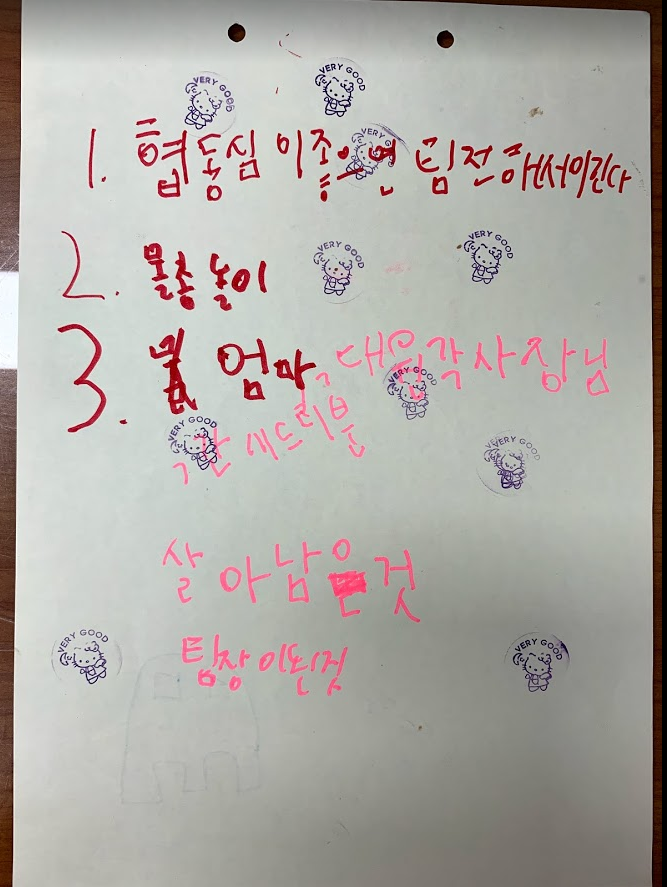 VERY GOOD
VERY GOOD
VERY GOOD
1. 협동심 이좋으면 팀전해서이긴다
VERY GOOD
VERY GOOD
2. 물총놀이
3. 엄마, 대왕각사장님
VERY GOOD
VERY GOOD
VERY GOOD
,갈세드리본
살아남은것
팀장이된것
VERY GOOD
VERY GOOD